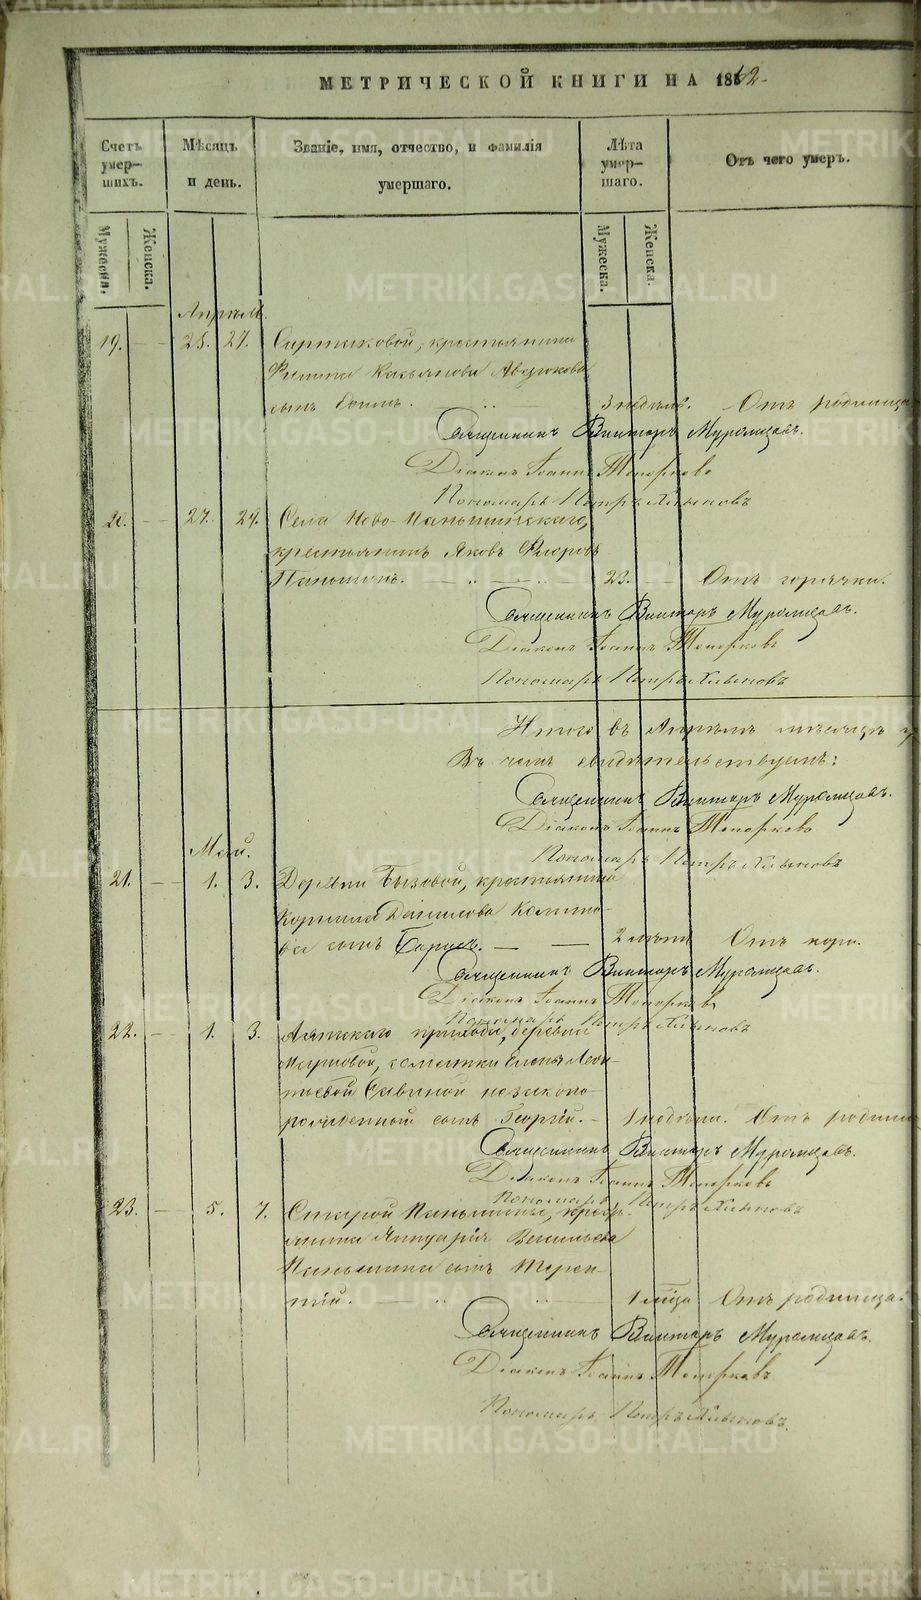 МЕТРИЧЕСКОЙ КНИГИ НА 1862
Счетъ умер-шихъ. Мѣсяцъ и день. Званіе, имя, отчество, и фамилія умершаго. Лѣта умер-шаго. Отъ чего умеръ.
Мужеска. Женска. Мужеска. Женска.
Апрѣль.
19. 25. 27. крестьянина
Филипа Касьянова
сынъ 3 недѣль. Отъ родимца
Священникъ Викторъ Муромцовъ.
Діаконъ Іоаннъ Топорковъ
Пономарь Петръ Хлыновъ
20. 27. 29. Села Ново-Паньшинскаго,
крестьянинъ Яковъ Флоровъ
Паньшинъ. 23. Отъ горячки.
Священникъ Викторъ Муромцовъ.
Діаконъ Іоаннъ Топорковъ
Пономарь Петръ Хлыновъ
Итого въ Апрѣлѣ мѣсяцѣ
Въ чемъ свидѣтельствуемъ:
Священникъ Викторъ Муромцовъ.
Діаконъ Іоаннъ Топорковъ
Пономарь Петръ Хлыновъ
Май.
21. 1. 3. Деревни Бызовой, крестьянина
Корнила Данилова
сынъ Борисъ. 2 лѣтъ Отъ кори.
Священникъ Викторъ Муромцовъ.
Діаконъ Іоаннъ Топорковъ
Пономарь Петръ Хлыновъ
22. 1. 3. прихода, деревни
Елены Леон-
тьевой Савиной незаконо-
рожденный сынъ Георгій. 1 недѣли. Отъ родимца
Священникъ Викторъ Муромцовъ.
Діаконъ Іоаннъ Топорковъ
Пономарь Петръ Хлыновъ
23. 5. 7. Старой Паньшины, крест-
янина Аннуарія Васильева
Паньшина сынъ Терен-
тій. 1 мѣсяца Отъ родимца.
Священникъ Викторъ Муромцовъ.
Діаконъ Іоаннъ Топорковъ
Пономарь Петръ Хлыновъ.
METRIKI.GASO-URAL.RU